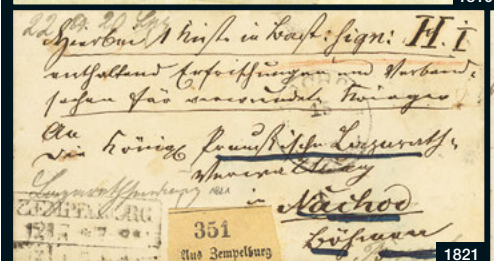 1819
Hierbei 1 Kiste in Bast: sign: H. I
enthaltend Erfrischungen und Verband-
sachen für verwundete Krieger
An
die Königl Preußische Lazareth-
Verwaltung
in Nachod
Böhmen
ZEMPELBURG
351
Aus Zempelburg
1821